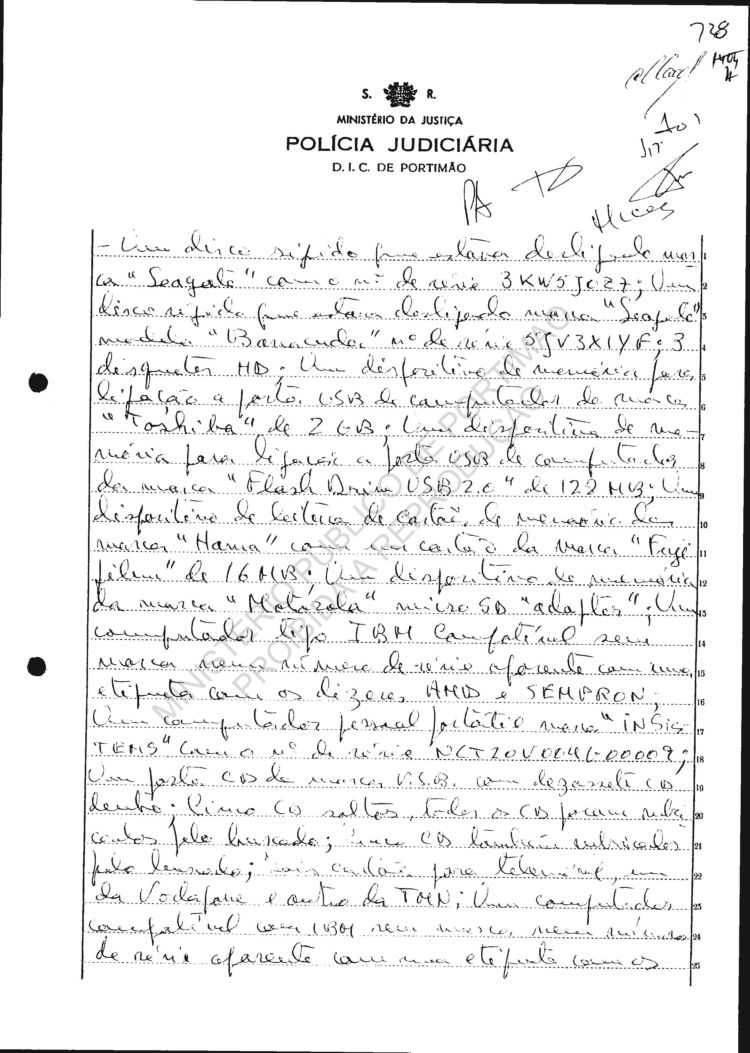 728
S. R.
MINISTÉRIO DA JUSTIÇA
POLÍCIA JUDICIÁRIA
D. I. C. DE PORTIMÃO
PA
- Um disco rígido que estava desligado mar- 1
ca "Seagate" com o nº de série 3KW5J027; Um 2
disco rígido que estava desligado marca "Seagate" 3
modelo "Barracuda" nº de série 5JV3X1YF; 3 4
disquetes HD; Um dispositivo de memória para 5
ligação a porta USB de computador da marca 6
"Toshiba" de 2 GB; Um dispositivo de me- 7
mória para ligação a porta USB de computador 8
da marca "Flash Drive USB 2.0" de 128 MB; Um 9
dispositivo de leitura de cartão de memória da 10
marca "Hama" com um cartão da marca "Fuji 11
film" de 16 MB; Um dispositivo de memória 12
da marca "Motorola" micro SD "adapter"; Um 13
computador tipo IBM Compatível sem 14
marca nem número de série aparente com uma 15
etiqueta com os dizeres AMD e SEMPRON; 16
Um computador pessoal portátil marca "INSIS 17
TEMS" com o nº de série 18
Um porta CDs da marca U.S.B. com dezassete CDs 19
dentro; Cinco CDs soltos, todos os CDs foram rubri 20
cados pelo buscado; CDs também rubricados 21
pelo buscado; cartões para telemóvel, um 22
da Vodafone e outro da TMN; Um computador 23
compatível com IBM sem marca nem número 24
de série aparente com uma etiqueta com os 25
MINISTÉRIO PÚBLICO DE PORTIMÃO
PROIBIDA A REPRODUÇÃO